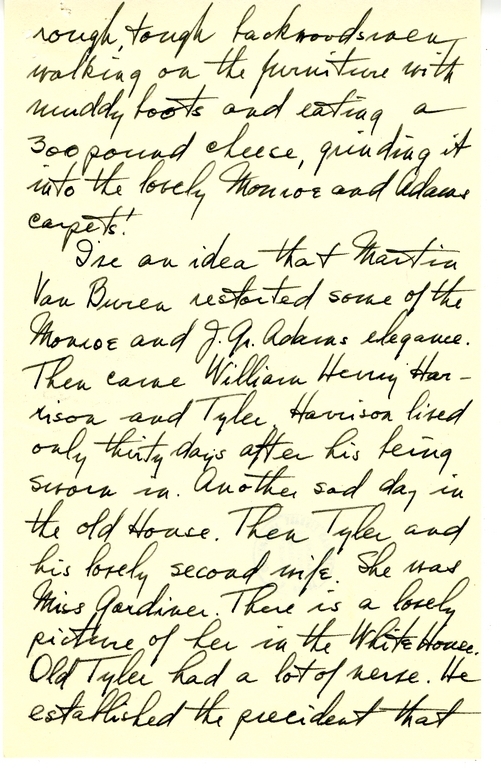 rough, tough backwoodsmen
walking on the furniture with
muddy boots and eating a
300 pound cheese, grinding it
into the lovely Monroe and Adams
carpets!
I've an idea that Martin
Van Buren restorted some of the
Monroe and J.Q. Adams elegance.
Then came William Henry Har-
rison and Tyler. Harrison lived
only thirty days after his being
sworn in. Another sad day in
the old House. Then Tyler and
his lovely second wife. She was
Miss Gardiner. There is a lovely
picture of her in the White House.
Old Tyler had a lot of nerve. He
established the precident that